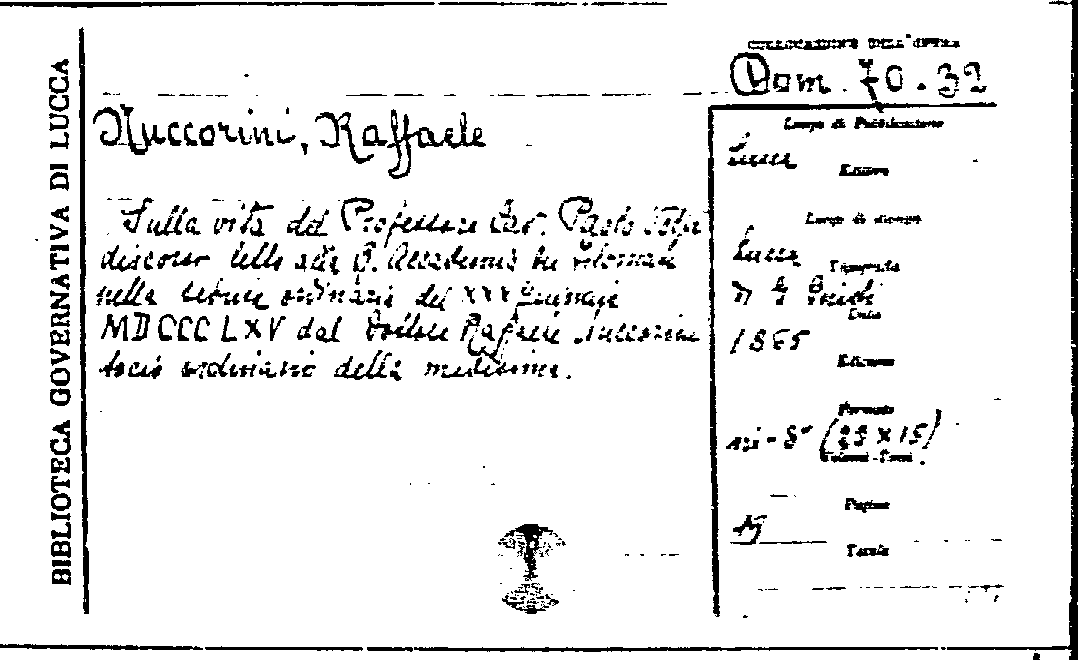 BIBLIOTECA GOVERNATIVA DI LUCCA
COLLOCAZIONE DELL'OPERA
Dom. 70.32
Nuccorini, Raffaele
Sulla vita del Professore Cav. Paolo
discorso letto alla R. Accademia dei Filomati
nella ordinaria del XXX
MDCCCLXV dal Dottore Raffaele Nuccorini
socio ordinario della medesima.
Luogo di Pubblicazione
Lucca
Editore
Luogo di stampa
Lucca
Tipografia
Data
1865
Edizione
Formato
in-8° (23 x 15)
Volumi-Tomi
Pagine
Tavole